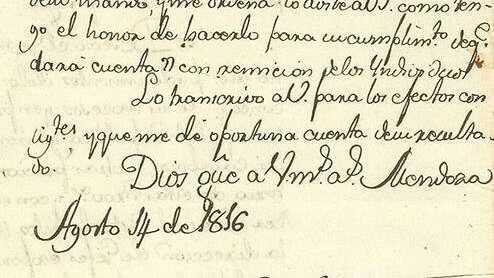 mando, y me ordena lo avise a V. como ten-
go el honor de hacerlo para su cumplim.to de q.e
dará cuenta con remicion de los Individuos
Lo transcrivo a V. para los efectos con
sig.tes y que me dé oportuna cuenta de su resulta
do.
Dios gūe a V. m.s a.s Mendoza
Agosto 14 de 1816